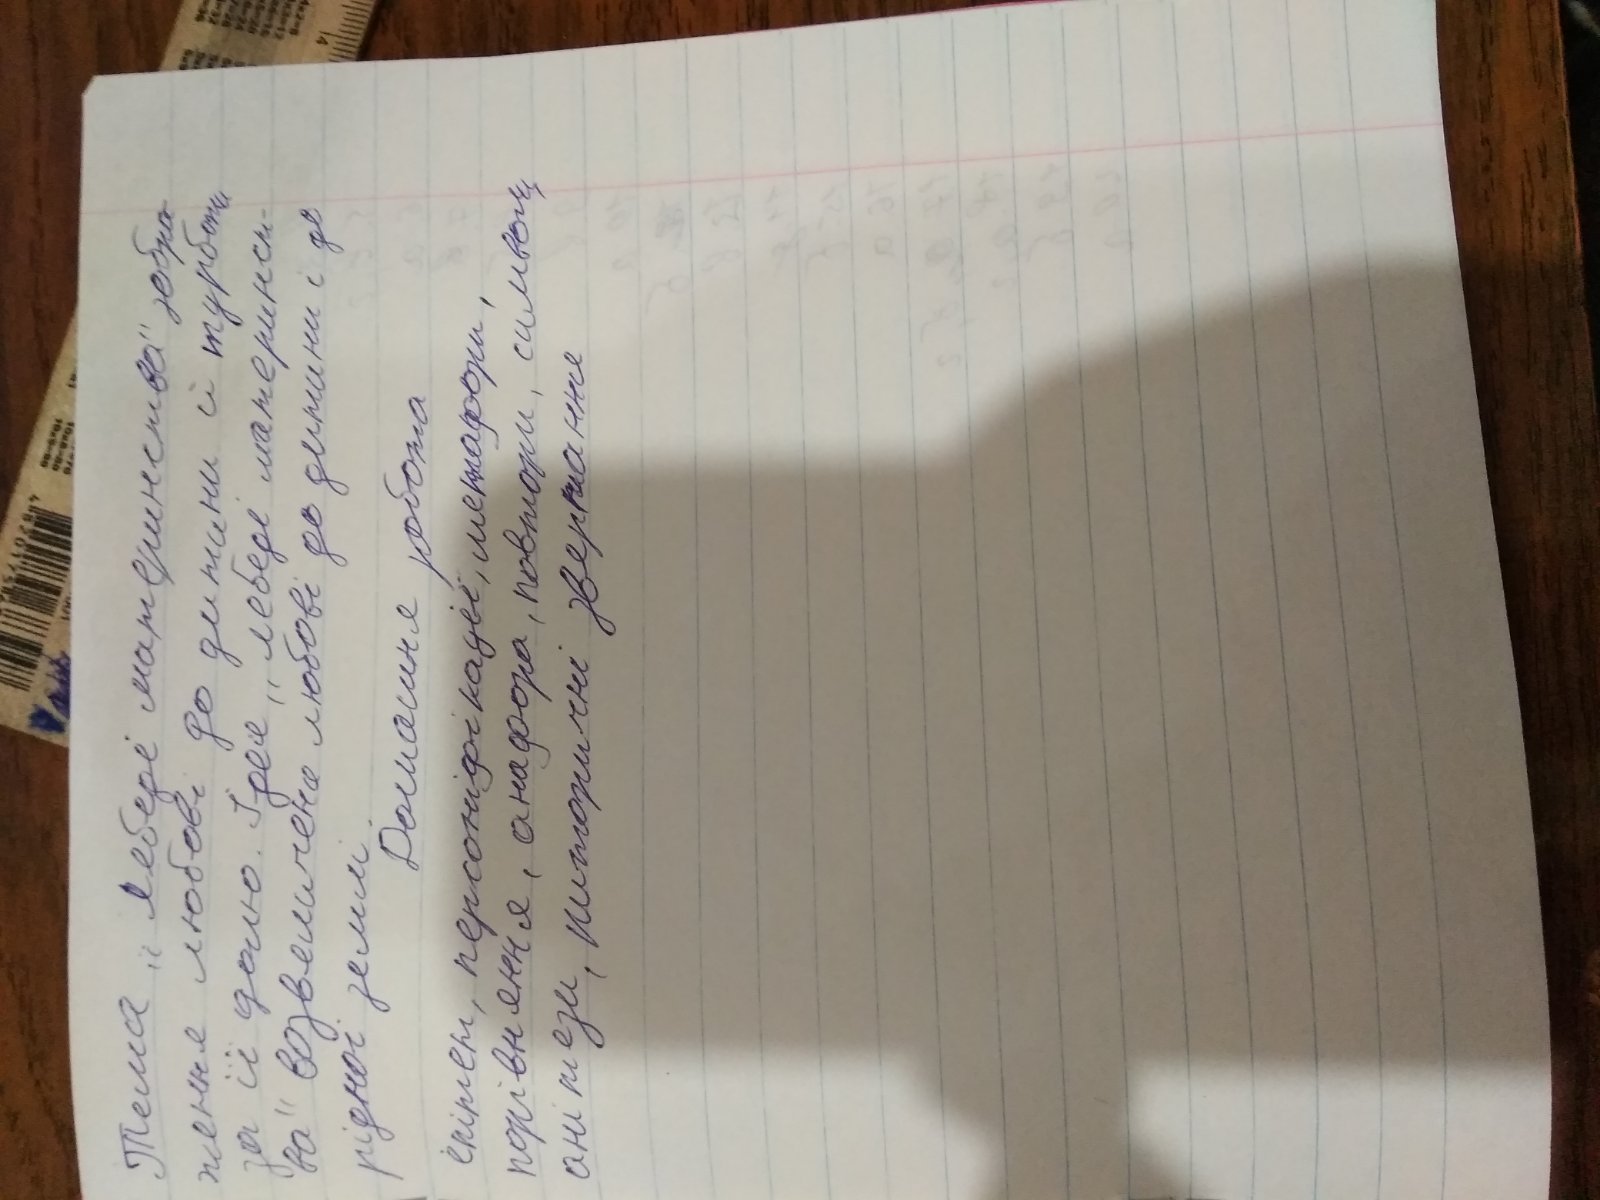 Тема „Лебеді материнства" зобра-
ження любові до дитини й турботи
за її долю. Ідея „лебеді материнсь-
ва" возвеличене любові до дитини і до
рідної землі.
Домашня робота
епітети, персоніфікації, метафори,
порівняння, анафора, повтори, символи,
антітези, риторичні звертання